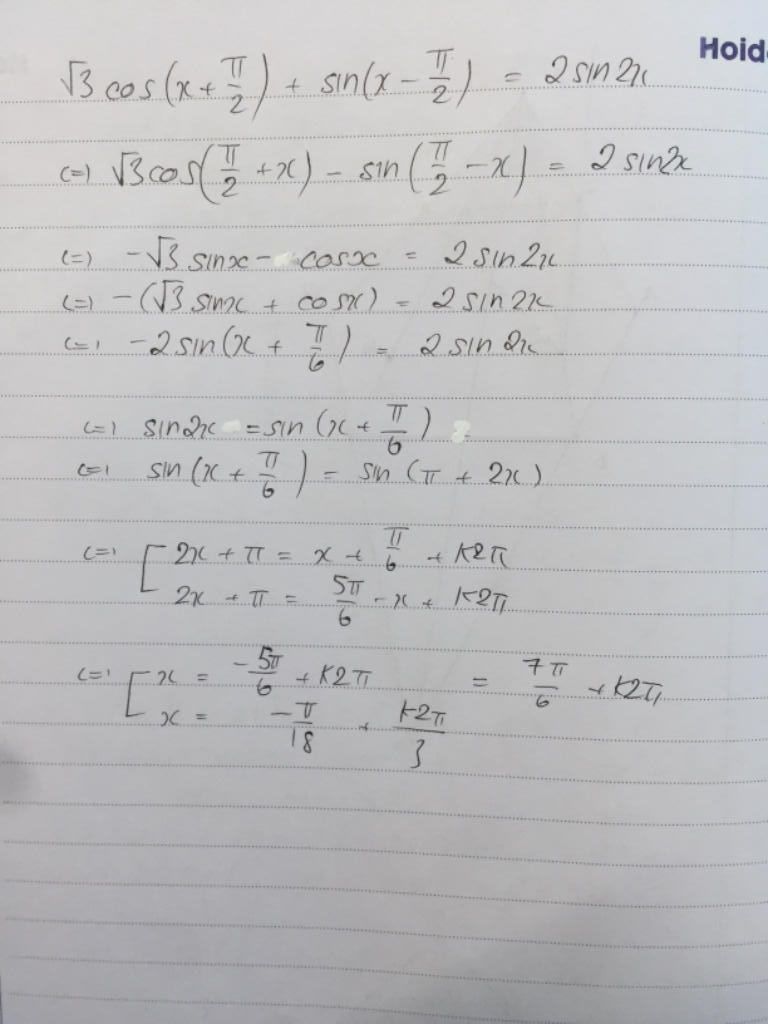 Hoid
√3 cos(x + π/2) + sin(x - π/2) = 2 sin 2x
(=) √3 cos(π/2 + x) - sin(π/2 - x) = 2 sin2x
(=) -√3 sinx - cosx = 2 sin 2x
(=) -(√3 sinx + cosx) = 2 sin 2x
(=) -2 sin(x + π/6) = 2 sin 2x
(=) sin2x = sin(x + π/6)
(=) sin(x + π/6) = sin(π + 2x)
(=) [ 2x + π = x + π/6 + k2π
2x + π = 5π/6 - x + k2π
(=) [ x = -5π/6 + k2π = 7π/6 + k2π
x = -π/18 + k2π/3